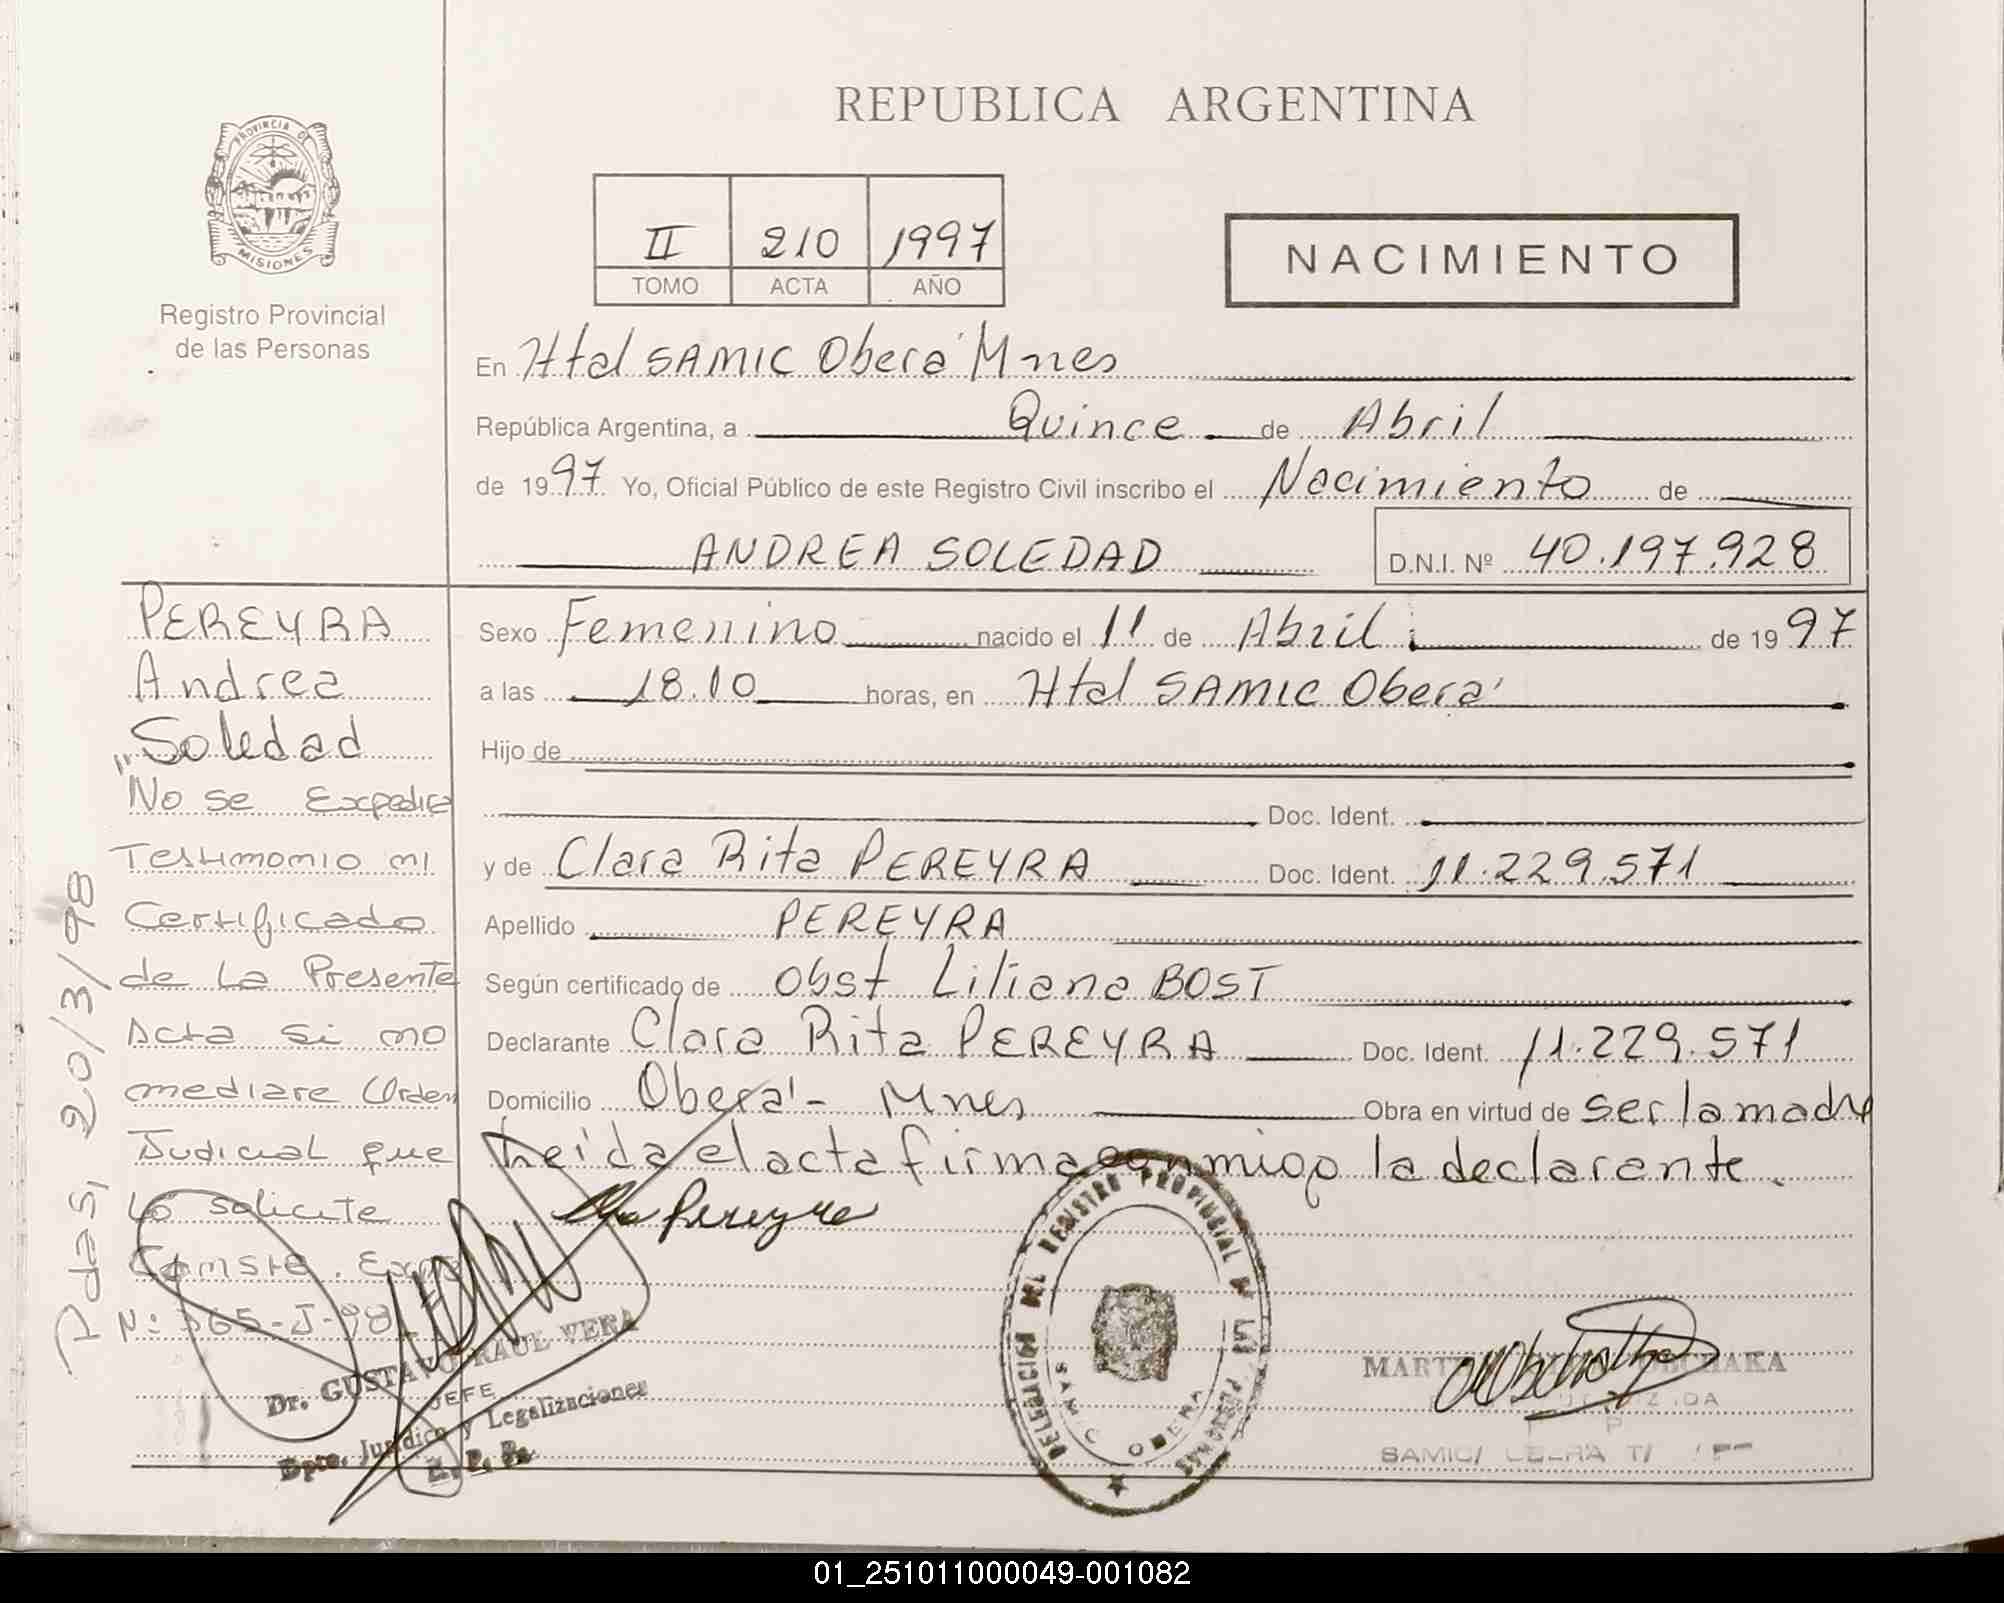 REPUBLICA ARGENTINA
PROVINCIA DE
MISIONES
Registro Provincial
de las Personas
II 210 1997
TOMO ACTA AÑO
NACIMIENTO
En Htal SAMIC Oberá Mnes
República Argentina, a Quince de Abril
de 1997 Yo, Oficial Público de este Registro Civil inscribo el Nacimiento de
ANDREA SOLEDAD D.N.I. Nº 40.197.928
Sexo Femenino nacido el 11 de Abril de 1997
a las 18.10 horas, en Htal SAMIC Oberá
Hijo de
Doc. Ident.
y de Clara Rita PEREYRA Doc. Ident. 11.229.571
Apellido PEREYRA
Según certificado de Obst Liliana BOST
Declarante Clara Rita PEREYRA Doc. Ident. 11.229.571
Domicilio Oberá - Mnes Obra en virtud de ser la madre
Leída el acta firma conmigo la declarante.
PEREYRA
Andrea
Soledad
"No se Expedira
Testimonio ni
Certificado
de La Presente
Acta si no
mediare Orden
Judicial que
Lo solicite
Conste. Expte
N: 365-J-98"
Pdas, 20/3/98
Pereyra
Dr. GUSTAVO RAUL VERA
JEFE
Dpto. Jurídico y Legalizaciones
R. P. P.
DELEGACION DEL REGISTRO PROVINCIAL DE LAS PERSONAS
SAMIC OBERA
SAMIC/
01_251011000049-001082